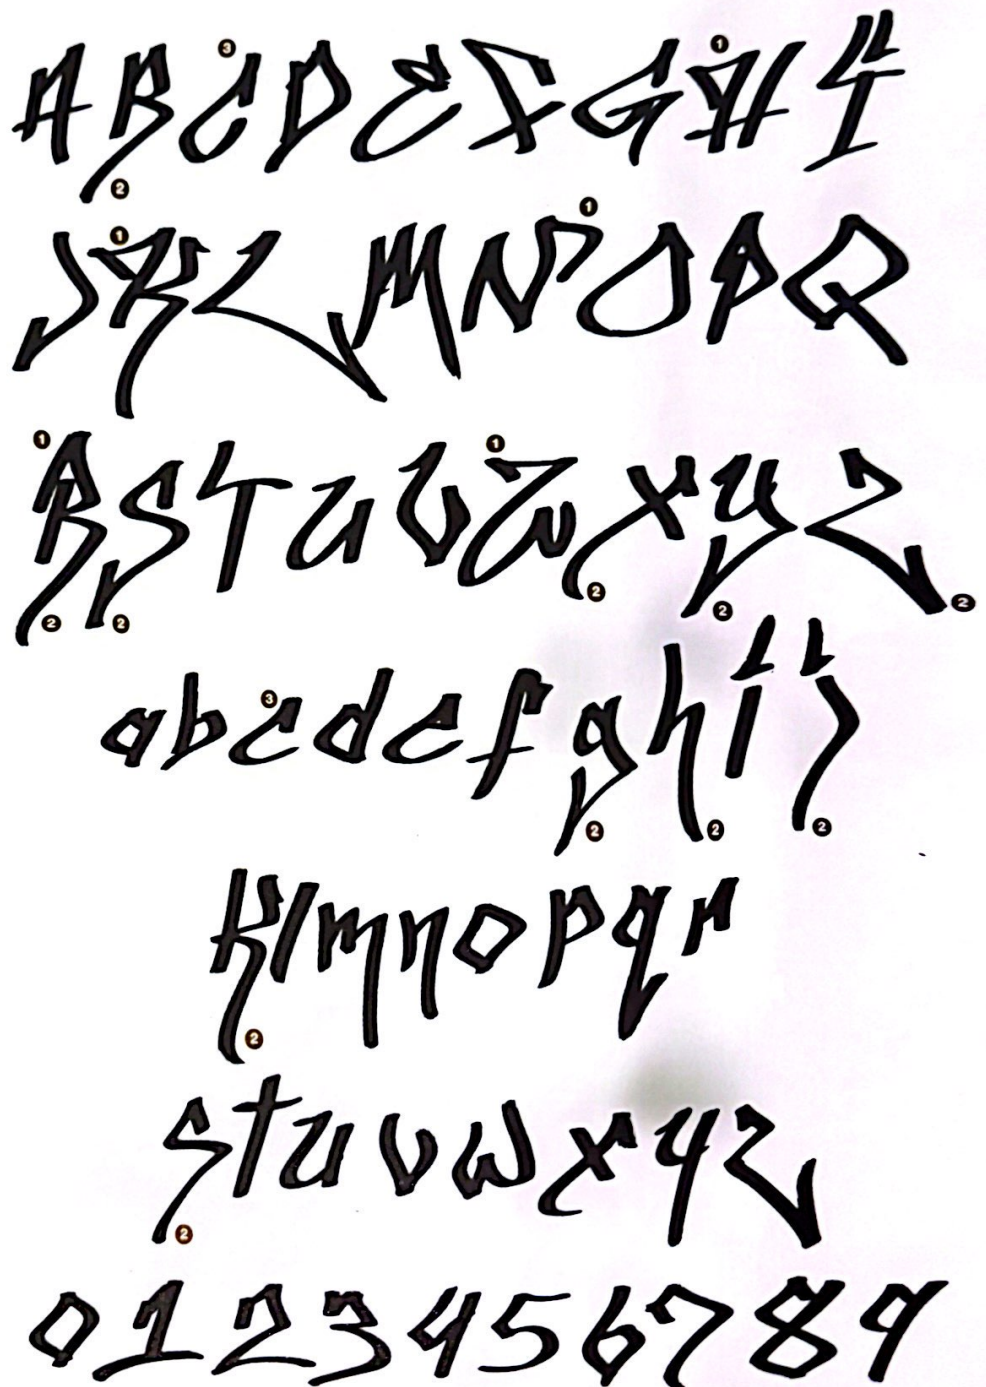 A B C D E F G H I
J K L M N O P Q
R S T U V W X Y Z
a b c d e f g h i j
k l m n o p q r
s t u v w x y z
0 1 2 3 4 5 6 7 8 9